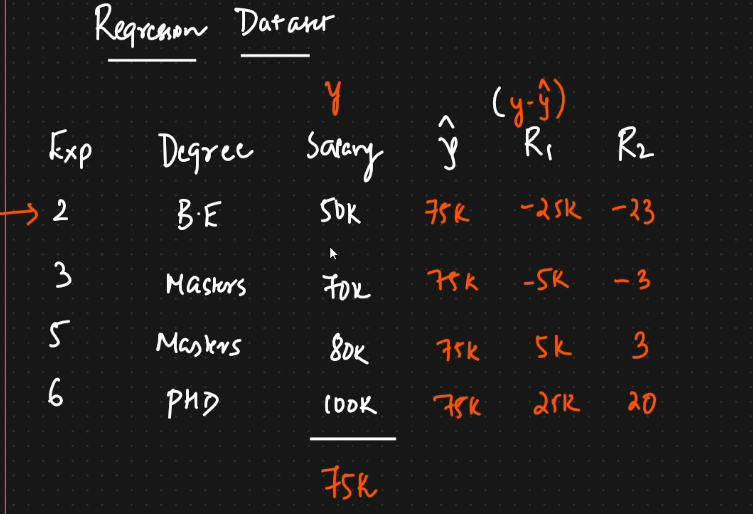 Regression Dataset
y (y-ŷ)
Exp Degree Salary ŷ R1 R2
→ 2 B.E 50K 75K -25K -23
3 Masters 70K 75K -5K -3
5 Masters 80K 75K 5K 3
6 PHD 100K 75K 25K 20
75K